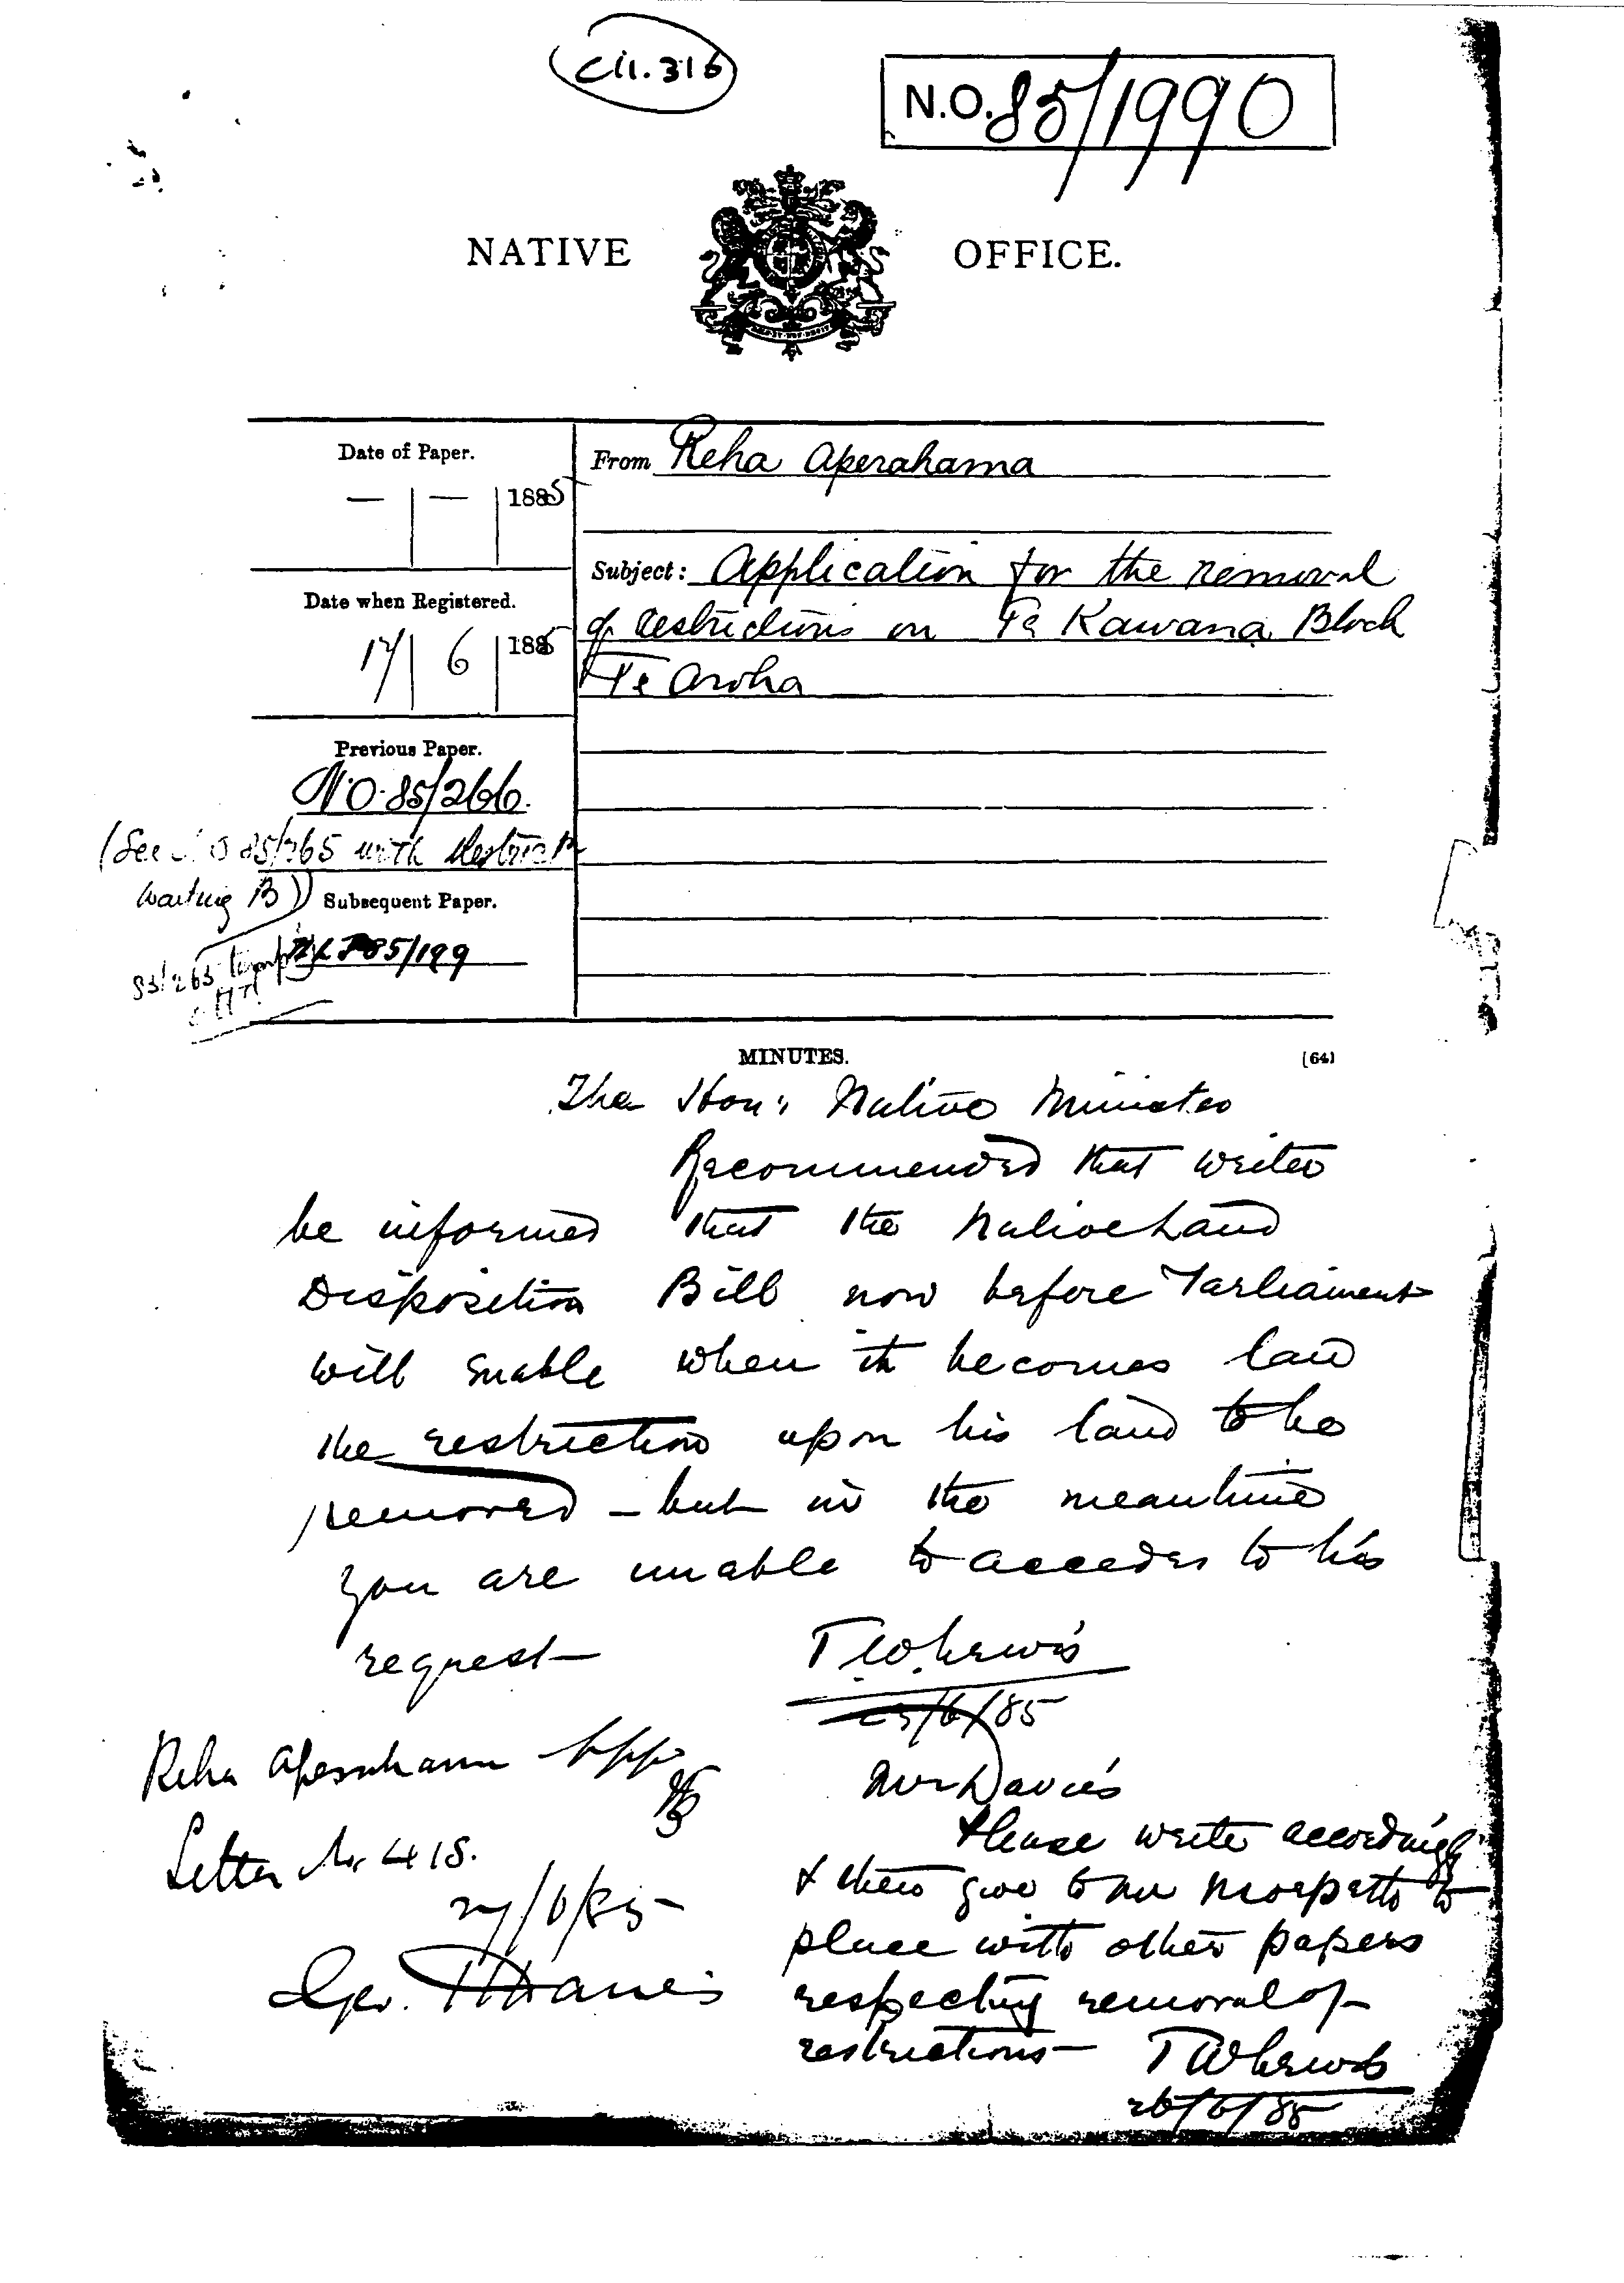 C11.316
N.O. 85/1990
NATIVE OFFICE.
Date of Paper.
— | — | 1885
From Reha Aperahama
Subject: Application for the removal
of restrictions on Te Kawana Block
Te Aroha
Date when Registered.
17 | 6 | 1885
Previous Paper.
NO. 85/266.
(See N O 85/265 with Restrict
Waiting B)
Subsequent Paper.
85/199
MINUTES.
(64)
The Hon: Native Minister
Recommended that writer
be informed that the Native Land
Disposition Bill now before Parliament
will enable when it becomes law
the restriction upon his land to be
removed – but in the meantime
you are unable to accede to his
request –
T.W. Lewis
/6/85
Reha Aperahama
Letter No 418.
27/6/85
Geo. T Davis
Mr Davies
Please write accordingly
& then give to Mr Morpeth to
place with other papers
respecting removal of
restrictions –
T W Lewis
26/6/85